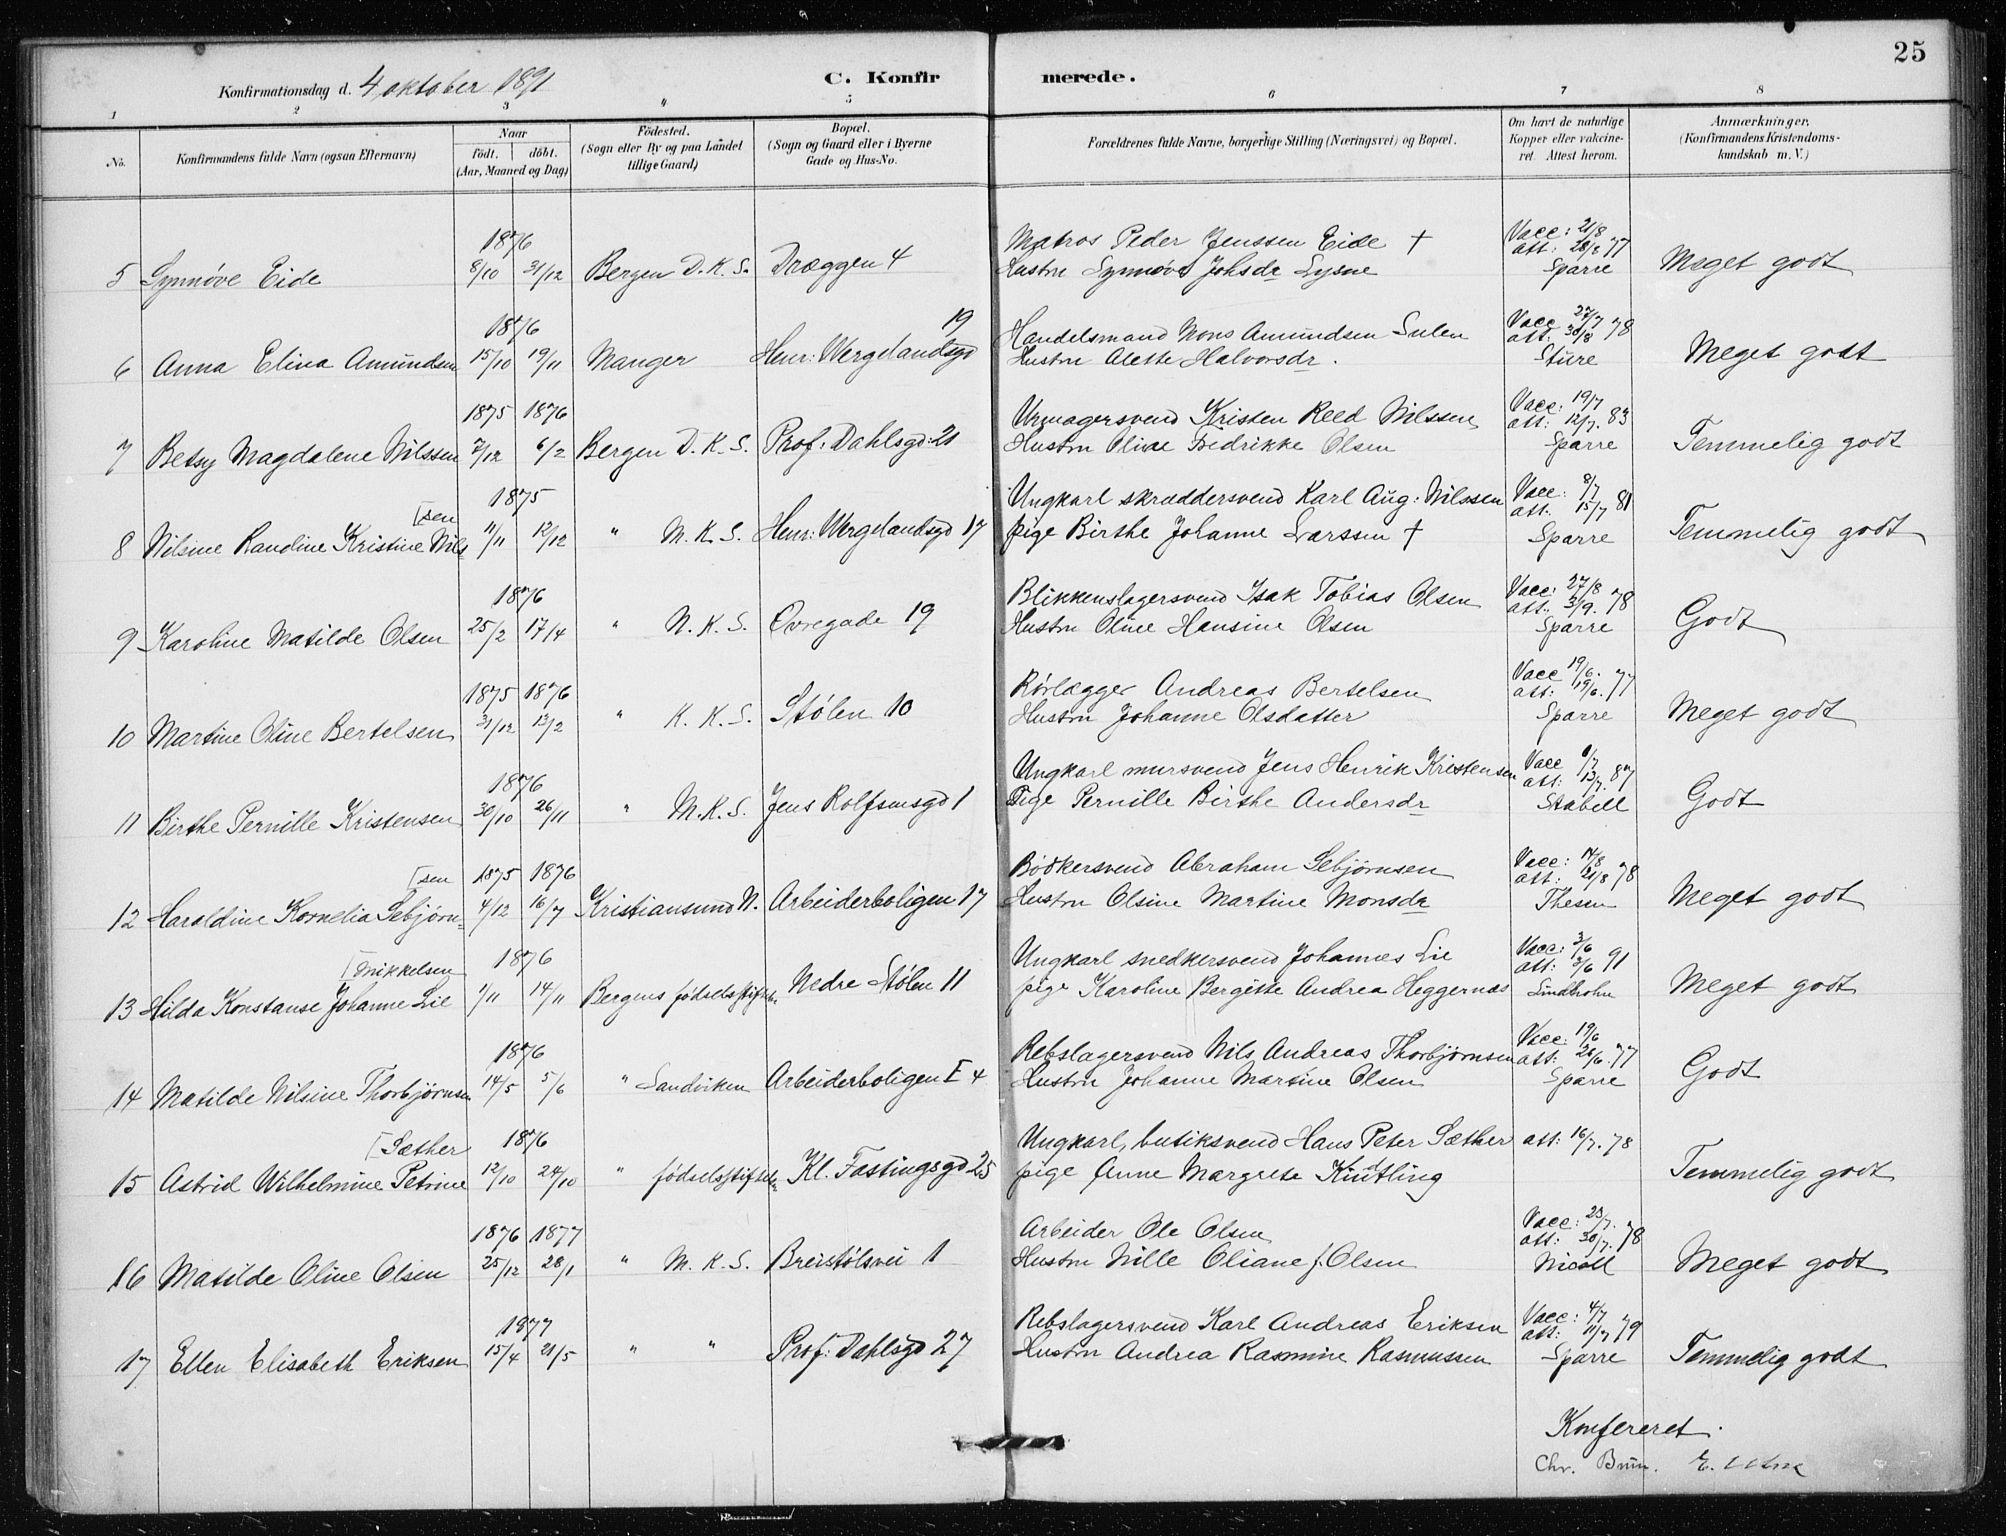 25
Konfirmationsdag d. 4 oktober 1891
C. Konfirmerede.
1 2 3 4 5 6 7 8
No. Konfirmandens fulde Navn (ogsaa Efternavn) Naar født. døbt. (Aar, Maaned og Dag) Fødested. (Sogn eller By og paa Landet tillige Gaard) Bopæl. (Sogn og Gaard eller i Byerne Gade og Hus-No. Forældrenes fulde Navne, borgerlige Stilling (Næringsvei) og Bopæl. Om havt de naturlige Kopper eller vakcineret. Attest herom. Anmærkninger. (Konfirmandens Kristendomskundskab m. V.)
1876 Matros Peder Jenssen Eide † Vacc: 21/8
5 Synnøve Eide 8/10 31/12 Bergen D. K. S. Dræggen 4 Hustru Synnøve Johsdr Lysne att: 28/8 77 Sparre Meget godt
1876 19 Handelsmand Mons Amundsen Sulen Vacc 27/7
6 Anna Elina Amundsen 15/10 19/11 Manger Henr: Wergelandsgd Hustru Alette Halvorsdr. att. 30/8 78 Sture Meget godt
1875 1876 Urmagersvend Kristen Reed Nilssen Vacc: 19/7
7 Betsy Magdalene Nilssen 7/12 6/2 Bergen D. K. S. Prof: Dahlsgd: 21 Hustru Oline Fredrikke Olsen att: 12/7. 83 Sparre Temmelig godt
[sen 1875 Ungkarl skræddersvend Karl Aug: Nilssen Vacc: 8/7
8 Nilsine Randine Kristine Nils 11/11 12/12 " M. K. S. Henr: Wergelandsgd 17 pige Birthe Johanne Larssen † att. 15/7 81 Sparre Temmelig godt
1876 Blikkenslagersvend Isak Tobias Olsen Vacc: 27/8
9 Karoline Matilde Olsen 25/2 17/4 " N. K. S. Øvregade 19 Hustru Oline Hansine Olsen att. 3/9. 78 Sparre Godt
1875 1876 Rørlægger Andreas Bertelsen Vacc 19/6.
10 Martine Oline Bertelsen 31/12 13/2 " K. K. S. Stølen 10 Hustru Johanne Olsdatter att: 19/6. 77 Sparre Meget godt
1876 Ungkarl mursvend Jens Henrik Kristensen Vacc 6/7
11 Birthe Pernille Kristensen 30/10 26/11 " M. K. S. Jens Rolfsensgd 1 Pige Pernille Birthe Andersdr att: 13/7. 87 Stabell Godt
[sen 1875 1876 Bødkersvend Abraham Sebjørnsen Vacc: 14/8
12 Haroldine Kornelia Sebjørn- 4/12 16/7 Kristiansund N. Arbeiderboligen 17 Hustru Olsine Martine Monsdr att: 21/8 78 Thesen Meget godt
[Mikkelsen 1876 Ungkarl snedkersvend Johannes Lie Vacc: 3/6
13 Hilda Konstanse Johanne Lie 1/11 14/11 Bergens fødselsstiftelse Nedre Stølen 11 pige Karoline Bergitte Andrea Heggernæs att: 3/6 91 Lindholm Meget godt
1876 Rebslagersvend Nils Andreas Thorbjørnsen Vacc: 19/6
14 Matilde Nilsine Thorbjørnsen 14/5 5/6 " Sandviken Arbeiderboligen I 4 Hustru Johanne Martine Olsen att: 26/6. 77 Sparre Godt
[Sæther 1876 Ungkarl, butiksvend Hans Peter Sæther att: 16/7. 78
15 Astrid Wilhelmine Petrine 12/10 24/10 " fødselsstiftelse Kl. Fastingsgd 25 pige Anne Margrete Knutling Temmelig godt
1876 1877 Arbeider Ole Olsen Vacc: 23/7.
16 Matilde Oline Olsen 25/12 28/1 " M. K. S. Breistølsvei 1 Hustru Nille Oliane f. Olsen att: 30/7. 78 Nicoll Meget godt
1877 Rebslagersvend Karl Andreas Eriksen Vacc: 4/7
17 Ellen Elisabeth Eriksen 15/4 21/5 " " Prof: Dahlsgd 27 Hustru Andrea Rasmine Rasmussen att: 11/7 79 Sparre Temmelig godt
Konfereret.
Chr. Bruun. E.